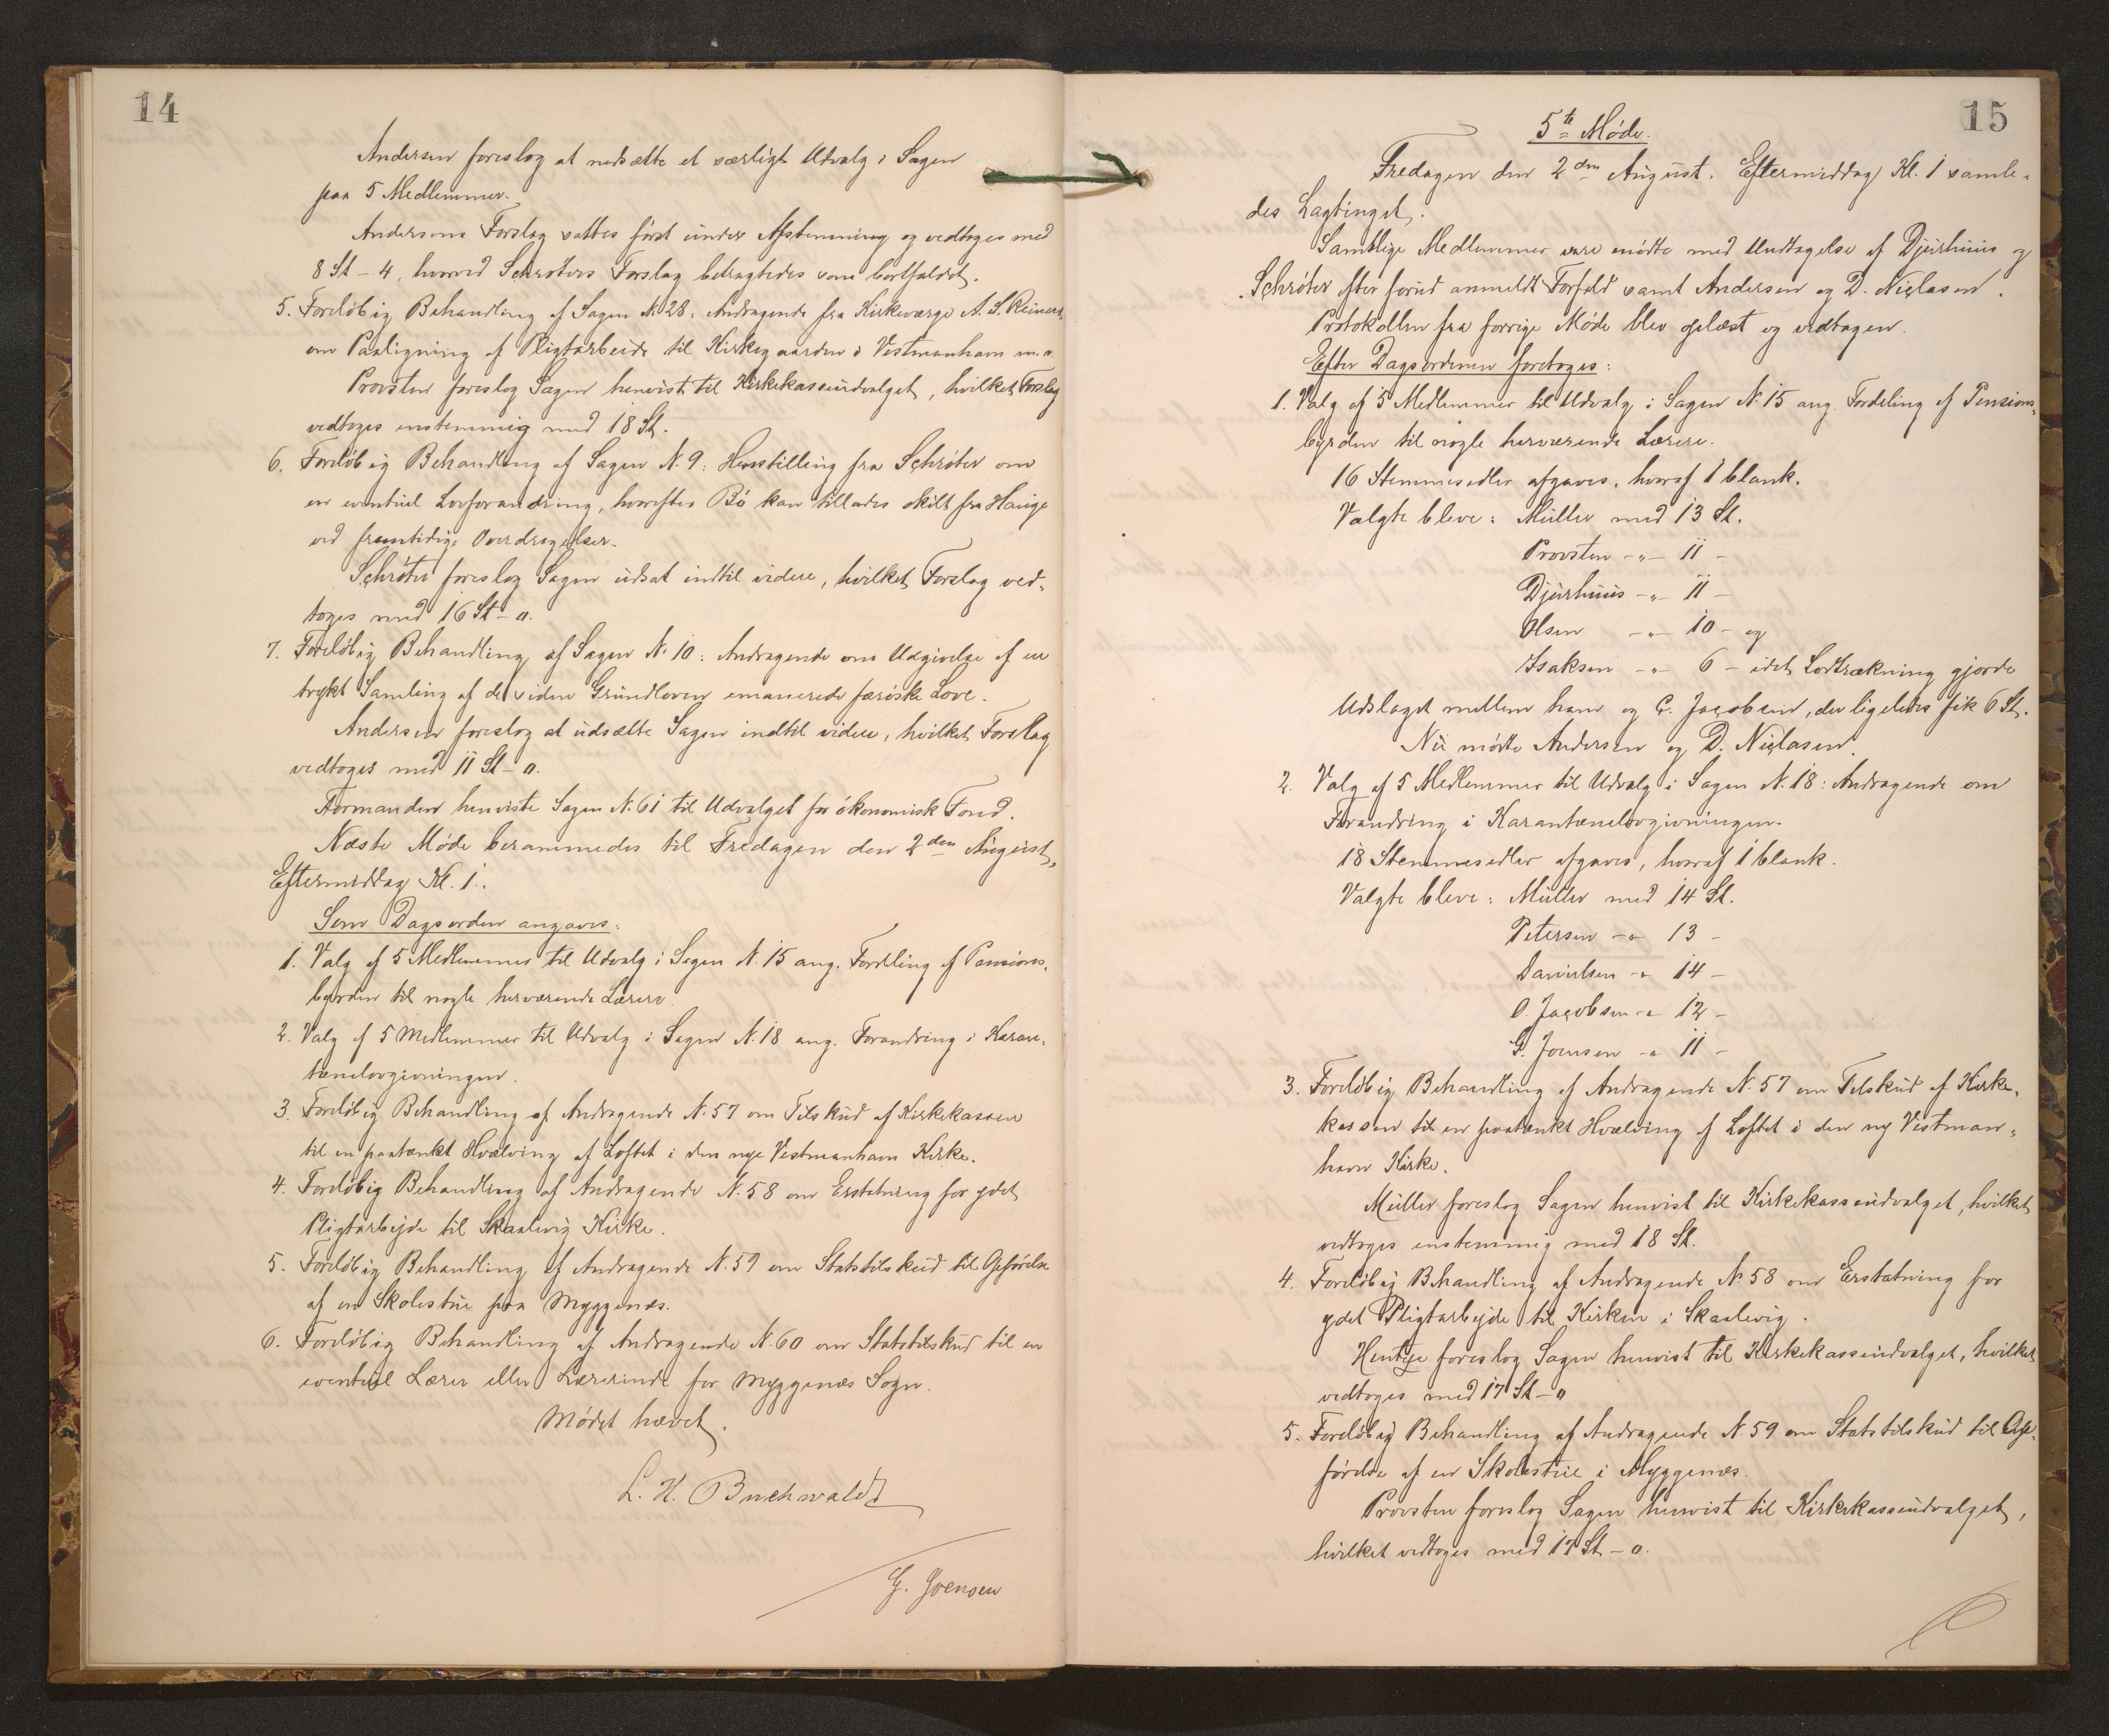 14
Andersen foreslog at nedsætte et særligt Udvalg i Sagen
paa 5 Medlemmer.
Andersens Forslag sattes først under Afstemning og vedtoges med
8 St – 4, hvorved Schrøters Forslag betragtedes som bortfaldet.
5. Foreløbig Behandling af Sagen N. 28: Andragende fra Kirkeværge A. S. Reinert
om Paaligning af Pligtarbeide til Kirkegaarden i Vestmanhavn m.v.
Provsten foreslog Sagen henvist til Kirkekasseudvalget, hvilket Forslag
vedtoges enstemmig med 18 St.
6. Foreløbig Behandling af Sagen N. 9: Henstilling fra Schrøter om
en eventuel Lovforandring, hvorefter Bø kan tillades skilt fra Hauge
ved fremtidige Overdragelser.
Schrøter foreslog Sagen udsat indtil videre, hvilket Forslag ved-
toges med 16 St – 0.
7. Foreløbig Behandling af Sagen N. 10: Andragende om Udgivelse af en
trykt Samling af de siden Grundloven emanerede færøske Love.
Andersen foreslog at udsætte Sagen indtil videre, hvilket Forslag
vedtoges med 11 St – 0.
Formanden henviste Sagen N. 61 til Udvalget for økonomisk Fond.
Næste Møde berammedes til Fredagen den 2den August,
Eftermiddag Kl. 1.
Som Dagsorden angaves:
1. Valg af 5 Medlemmer til Udvalg i Sagen N. 15 ang. Fordeling af Pensions-
byrden til nogle herværende Lærere.
2. Valg af 5 Medlemmer til Udvalg i Sagen N. 18 ang. Forandring i Karan-
tænelovgivningen.
3. Foreløbig Behandling af Andragende N. 57 om Tilskud af Kirkekassen
til en paatænkt Hvælving af Loftet i den nye Vestmanhavn Kirke.
4. Foreløbig Behandling af Andragende N. 58 om Erstatning for ydet
Pligtarbejde til Skaalevig Kirke.
5. Foreløbig Behandling af Andragende N. 59 om Statstilskud til Opførelse
af en Skolestue paa Myggenæs.
6. Foreløbig Behandling af Andragende N. 60 om Statstilskud til en
eventuel Lærer eller Lærerinde for Myggenæs Sogn.
Mødet hævet.
L. H. Buchwaldt
G. Joensen
15
5te Møde.
Fredagen den 2den August. Eftermiddag Kl. 1 samle-
des Lagtinget.
Samtlige Medlemmer vare mødte med Undtagelse af Djurhuus og
Schrøter efter forud anmeldt Forfald samt Andersen og D. Niclasen.
Protokollen fra forrige Møde blev oplæst og vedtagen.
Efter Dagsordenen foretoges:
1. Valg af 5 Medlemmer til Udvalg i Sagen N. 15 ang. Fordeling af Pensions-
byrden til nogle herværende Lærere.
16 Stemmesedler afgaves, hvoraf 1 blank.
Valgte bleve: Müller med 13 St.
Provsten –"– 11 –
Djurhuus –"– 11 –
Olsen –"– 10 – og
Isaksen –"– 6 – idet Lodtrækning gjorde
Udslaget mellem ham og G. Jacobsen, der ligeledes fik 6 St.
Nu mødte Andersen og D. Niclasen.
2. Valg af 5 Medlemmer til Udvalg i Sagen N. 18: Andragende om
Forandring i Karantænelovgivningen.
18 Stemmesedler afgaves, hvoraf 1 blank.
Valgte bleve: Müller med 14 St.
Petersen –"– 13 –
Danielsen –"– 14 –
O. Jacobsen –"– 12 –
G. Joensen –"– 11 –
3. Foreløbig Behandling af Andragende N. 57 om Tilskud af Kirke-
kassen til en paatænkt Hvælving af Loftet i den ny Vestman-
havn Kirke.
Müller foreslog Sagen henvist til Kirkekasseudvalget, hvilket
vedtoges enstemmig med 18 St.
4. Foreløbig Behandling af Andragende N. 58 om Erstatning for
ydet Pligtarbejde til Kirken i Skaalevig.
Hentze foreslog Sagen henvist til Kirkekasseudvalget, hvilket
vedtoges med 17 St – 0
5. Foreløbig Behandling af Andragende N. 59 om Statstilskud til Op-
førelse af en Skolestue i Myggenæs.
Provsten foreslog Sagen henvist til Kirkekasseudvalget,
hvilket vedtoges med 17 St – 0.